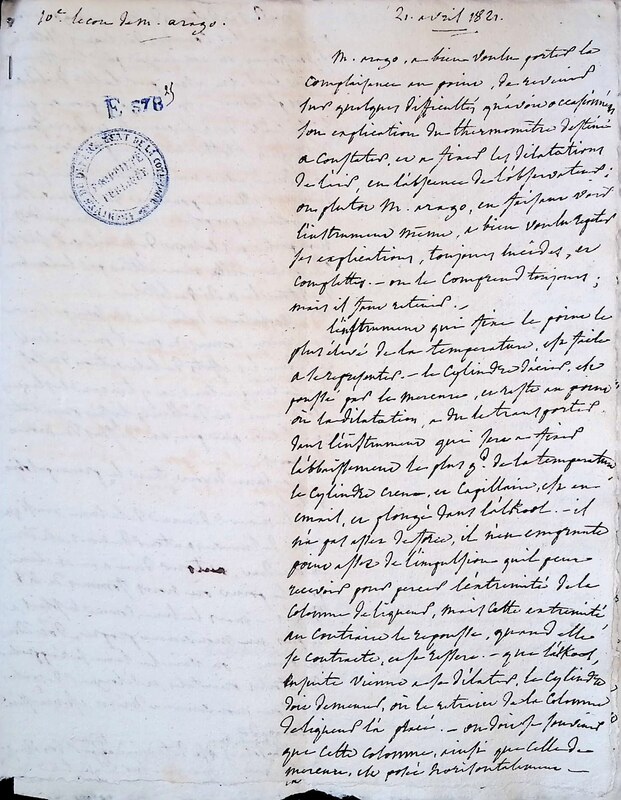 10e leçon de m. arago.
21. avril 1821.
E 378
DÉPARTEMENT DE LA CÔTE
ARCHIVES
m. arago, a bien voulu porter la
complaisance au point, de revenir
sur quelques difficultés qu'avoit occasionnées
son explication du thermomètre destiné
a constater, et a fixer les dilatations
de l'air, en l'absence de l'observateur;
ou plutot M. arago, en faisant voir
l'instrument même, a bien voulu répéter
ses explications, toujours lucides, et
complettes. – on le comprend toujours;
mais il faut retenir. –
l'instrument qui fixe le point le
plus élevé de la température, est facile
a se représenter. – le cylindre d'acier, est
poussé par le mercure, et reste au point
où la dilatation, a du le transporter.
dans l'instrument qui sera a fixer
l'abbaissement le plus gd. de la température
le cylindre creux, et capillaire, est en
émail, et plongé dans l'alkool. – il
n'a pas assez de force, il n'en emprunte
point assez de l'impulsion qu'il peut
recevoir pour percer l'extremité de la
colonne de liqueur, mais cette extremité
au contraire le repousse, quand elle
se contracte, et se resserre. – que l'alkool,
ensuite vienne a se dilater, le cylindre
doit demeurer, où le retrait de la colonne
de liqueur l'a placé. – on doit se souvenir
que cette colonne, ainsi que celle de
mercure, est posée horisontalement –